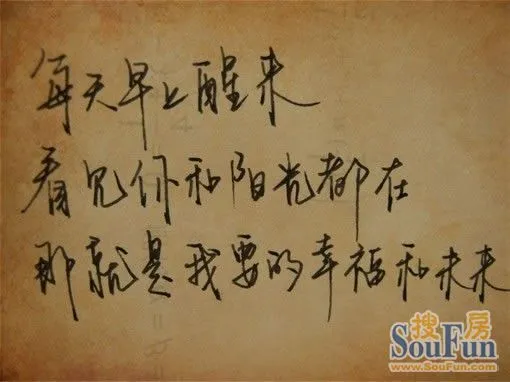 每天早上醒来
看见你和阳光都在
那就是我要的幸福和未来
搜房
SouFun
www.SouFun.com